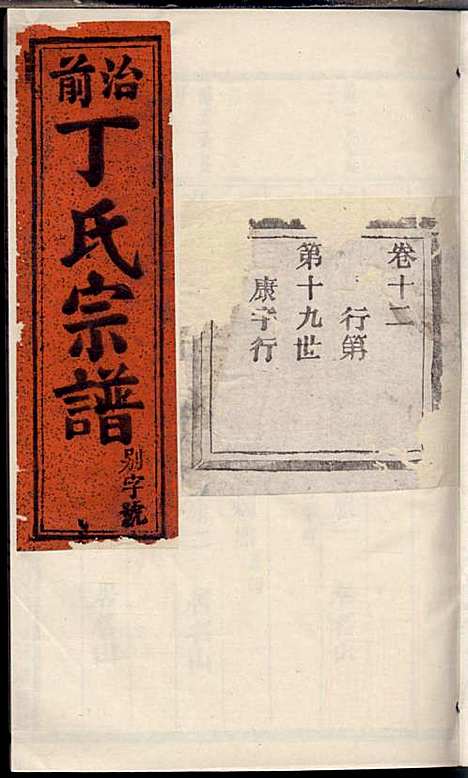 卷十二
行第
第十九世
康字行
治前
丁氏宗譜
别字號